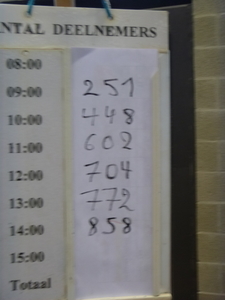 NTAL DEELNEMERS
08:00
09:00 251
10:00 448
11:00 602
12:00 704
13:00 772
14:00 858
15:00
Totaal